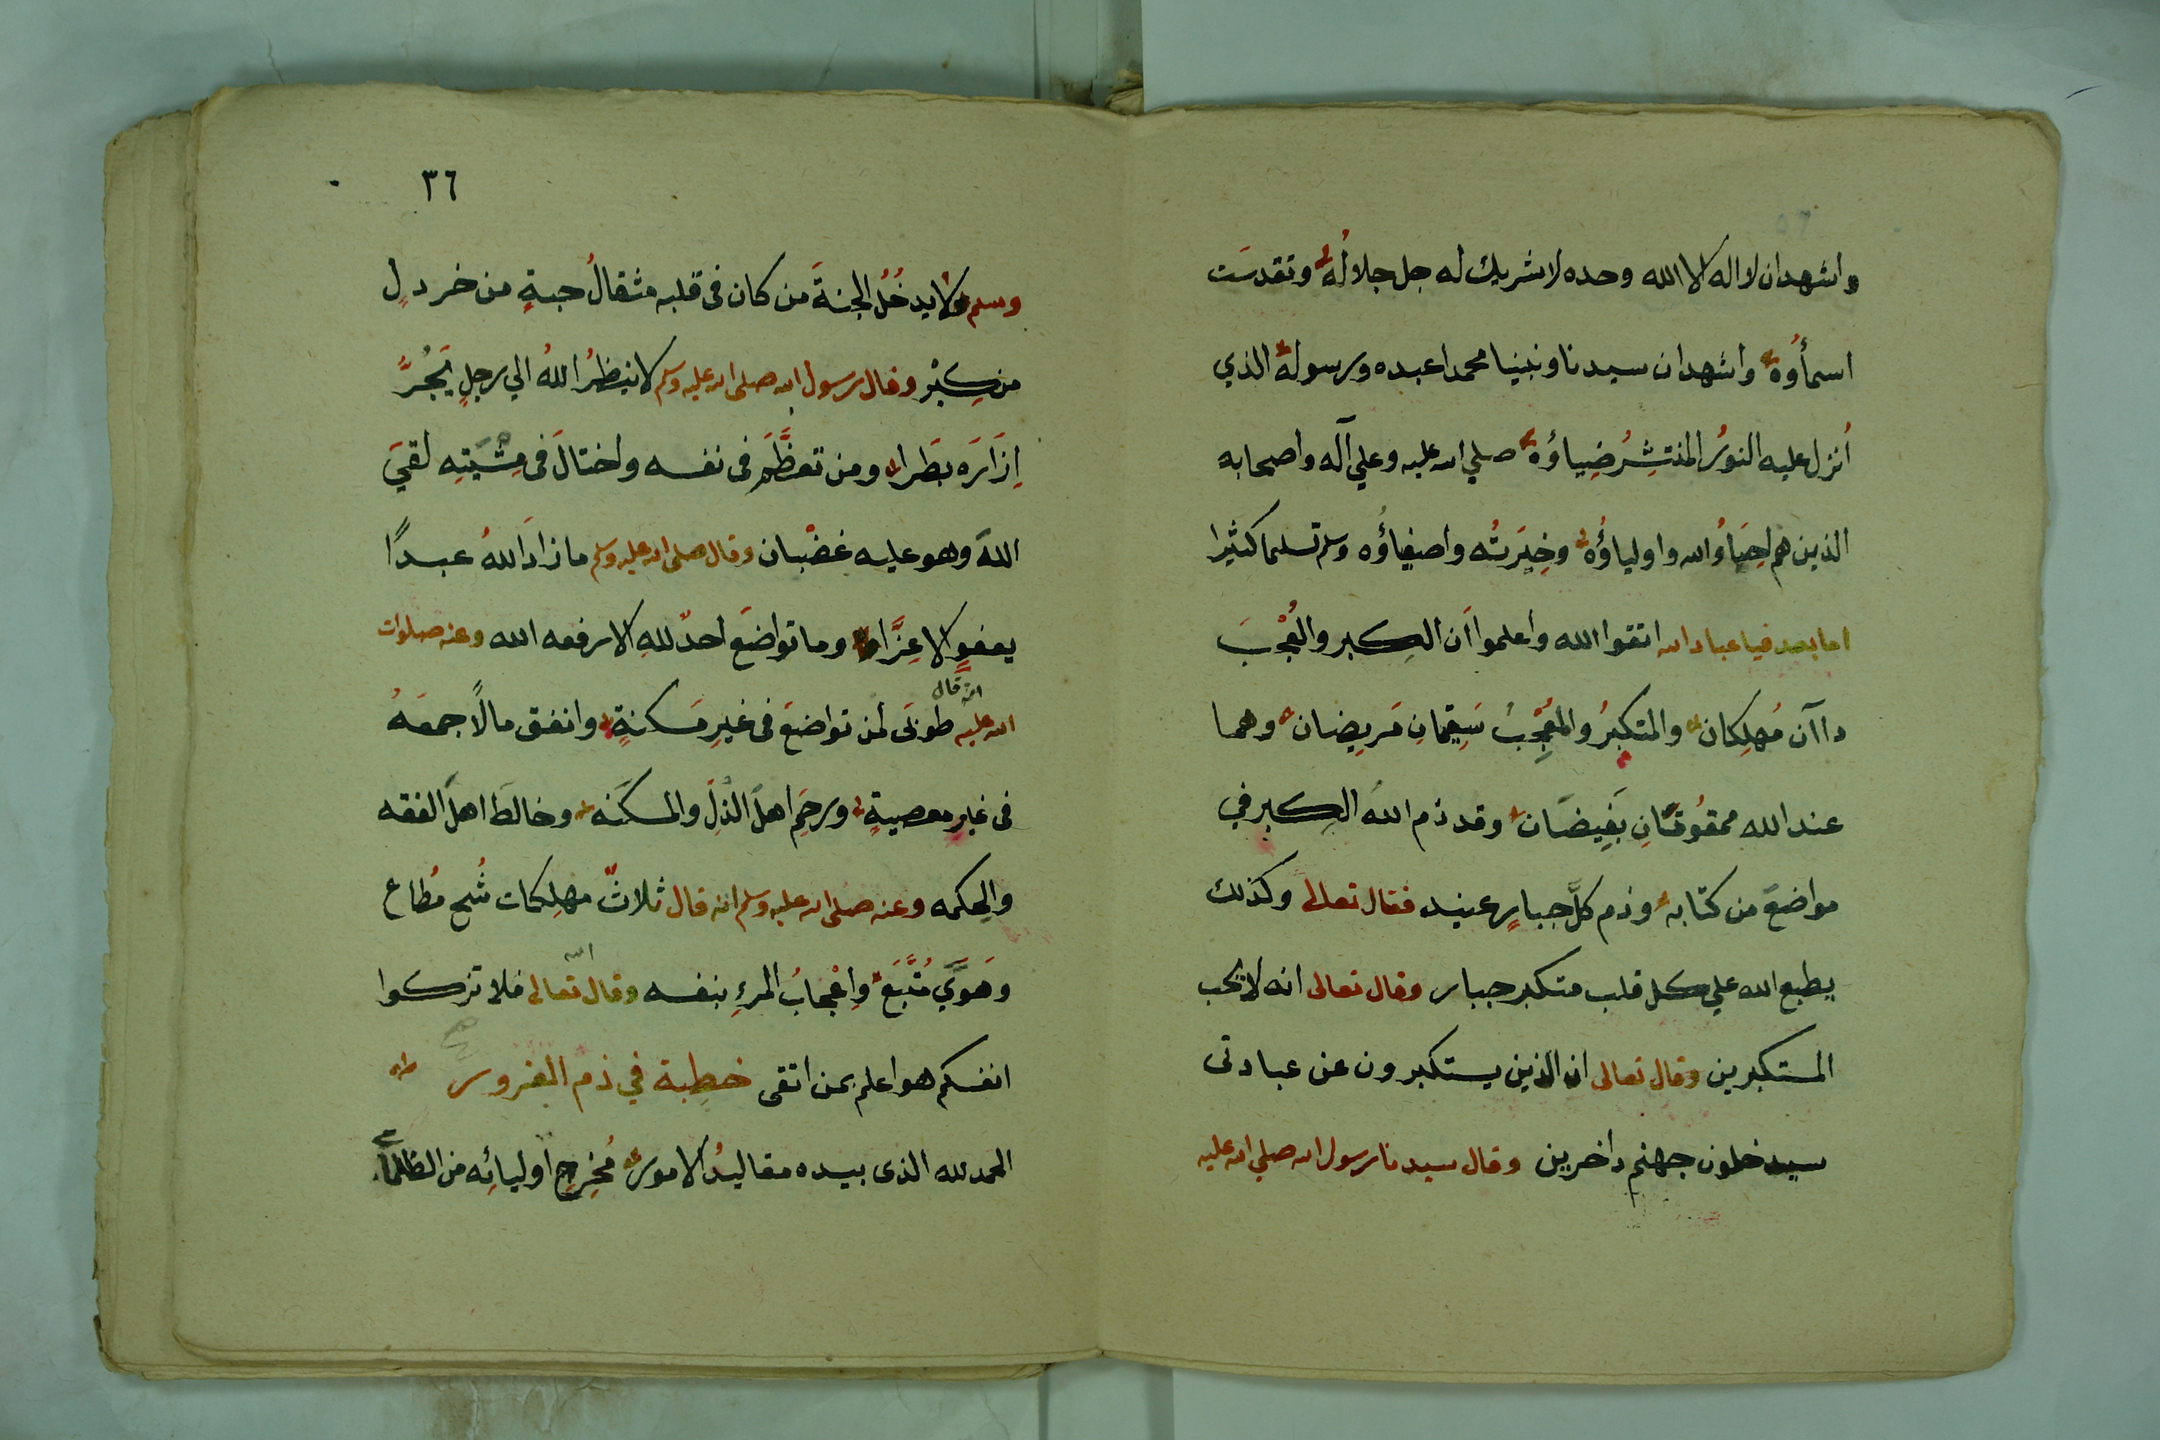 واشهد ان لا اله الا الله وحده لا شريك له جل جلالُهُ وتقدسَت
اسمأوُهُ واشهد ان سيدنا ونبينا محمدا عبده ورسولهُ الذي
اُنزل عليه النورُ المنتشِرُ ضِياؤُهُ صلي الله عليه وعلي آله واصحابه
الذين هم احِبَاؤُ الله واولياؤُهُ وخِيَرتُه واصفياؤُه وسلم تسليما كثيرا
اما بعد فيا عباد الله اتقوا الله واعلموا اَن الكِبر والعُجْبَ
داآن مُهلِكان والمتكبرُ والمُعْجِبُ سَقِيمانِ مَريضان وهما
عند الله ممقُوتَانِ بَغِيضَان وقد ذم اللهُ الكِبر في
مواضعَ من كتابه وذم كلَّ جبارٍ عنيد فقال تعالى وكذلك
يطبع الله علي كل قلب متكبر جبار وقال تعالى انه لا يحب
المستكبرين وقال تعالى ان الذين يستكبرون عن عبادتى
سيدخلون جهنم داخرين وقال سيدنا رسول الله صلي الله عليه
٣٦
وسلم لا يدخُلُ الجنةَ من كان فى قلبه مثقالُ حبةٍ من خردلٍ
من كِبْرٍ وقال رسول الله صلى الله عليه وسلم لا ينظرُ اللهُ الي رجلٍ يَجُرَّ
اِزَارَه بطَرا ومن تعظَّمَ فى نفسه واختالَ فى مِشْيَتِه لقيَ
اللهَ وهو عليه غضْبان وقال صلى الله عليه وسلم ما زادَ اللهُ عبدًا
بعفوٍ الا عِزَّا وما تواضَع احدٌ للهِ الا رفعه الله وعنه صلوات
الله عليه انه قال طوبَى لمن تواضعَ فى غيرِ مَسكنةٍ وانفق مالاً جمعَهُ
فى غير معصيةٍ ورحِمَ اهلَ الذُلِّ والمسكَنه وخالطَ اهلَ الفقه
والحِكمه وعنه صلى الله عليه وسلم انه قال ثلاثٌ مهلِكات شُح مُطاع
وَهَوًي مُتَّبَع وِاعْجابُ المرءِ بنفسه وقال الله تعالى فلا تزكوا
انفسكم هو اعلم بمن اتقى خطبة في ذم الغرور
الحمد لله الذى بيده مقاليدُ الامور مُخرِج اوليائِه من الظلمات